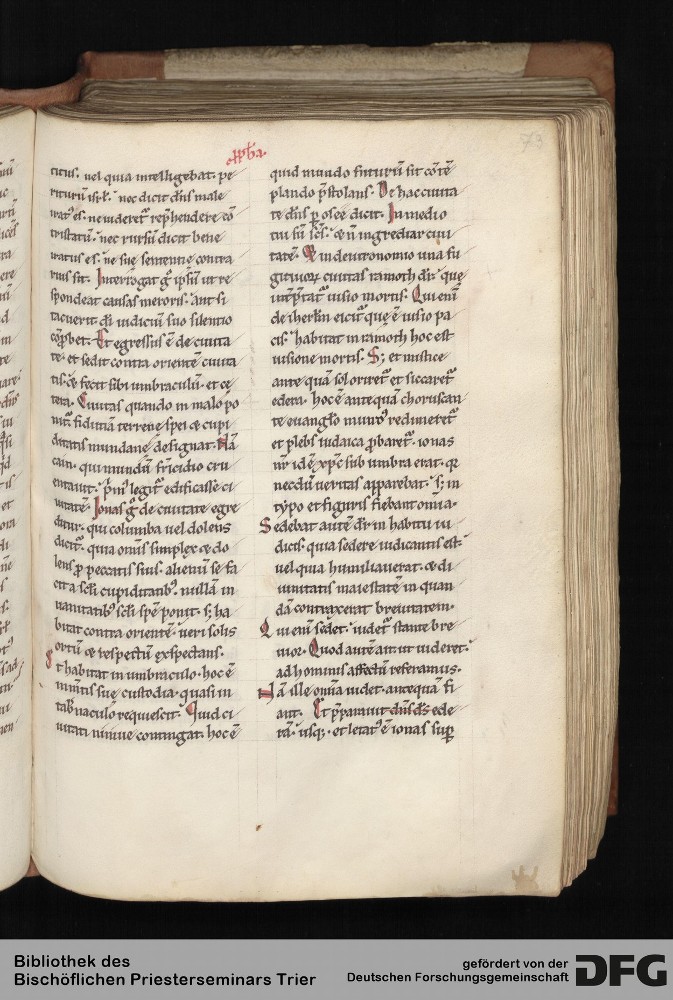 73
citius. uel quia intelligebat. pe
riturū isrł. nec dicit dn̄s male
iratꝰ es. ne uideretᷣ rep̄hendere cō
tristatū. nec rursū dicit bene
iratus es. ne sue sententie contra
rius sit. Interrogat gͦ ipsū ut re
spondeat causas meroris. aut si
tacuerit dī iudiciū suo silentio
cōꝓbet. Et egressus ē de ciuita
te. et sedit contra orientē ciuita
tis. & fecit sibi umbraculū. et ce
tera. Ciuitas quando in malo po
nitᷣ. fiduciā terrene spei & cupi
ditatis mundane designat. Nā
cain. qui mundū fr̄icidio cru
entauit. p̄mꝰ legitᷣ edificasse ci
uitatē. Ionas gͦ de ciuitate egre
ditur. qui columba uel dolens
dicitᷣ. quia om̄is simplex & do
lens ꝓ peccatis suis. alienū se fa
cit a sc̄li cupiditatibꝰ. nullā in
uanitatibꝰ sc̄li spē ponit. sꝫ ha
bitat contra orientē. ueri solis
ortū & respectū exspectans.
Et habitat in umbraculo. hoc ē
in mentis sue custodia. quasi in
tab̄naculo requiescit. Quid ci
uitati niniue contingat. hoc ē
quid mundo futurū sit cōtē
plando p̄stolans. De hac ciuita
te dn̄s ꝑ osee dicit. In medio
tui sū sc̄s. & n̄ ingrediar ciui
tatē. & in deutronomio una fu
gitiuorꝝ ciuitas ramoth dr̄. que
int̄p̄tatᷣ uisio mortis. Qui enī
de iherłm eicitᷣ que ē uisio pa
cis. habitat in ramoth hoc est
uisione mortis. Sꝫ et mistice
ante quā sol oriretᷣ et siccaretᷣ
edera. hoc ē antequā choruscan
te euangl̄io mundꝰ redimeretᷣ
et plebs iudaica ꝓbaretᷣ. ionas
nr̄ id ē xp̄c sub umbra erat. qr
necdū ueritas apparebat. sꝫ in
typo et figuris fiebant omnia.
Sedebat autē dr̄ in habitu iu
dicis. quia sedere iudicantis est.
uel quia humiliauerat. & di
uinitatis maiestatē in quan
dā contraxerat breuitatem.
Qui enī sedet. uidetᷣ stante bre
uior. Quod autē ait ut uideret.
ad hominis affectū referamus.
Nā ille omīa uidet. antequā fi
ant. Et p̄parauit dn̄s ds̄ ede
rā. usqꝫ. et letatꝰ ē ionas suꝑ
Bibliothek des
Bischöflichen Priesterseminars Trier
gefördert von der
Deutschen Forschungsgemeinschaft
DFG